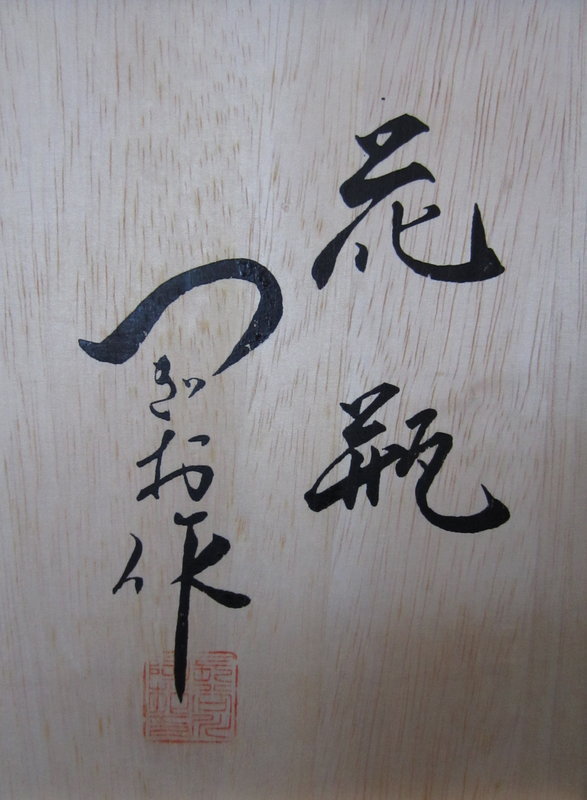 花瓶
つぎお作